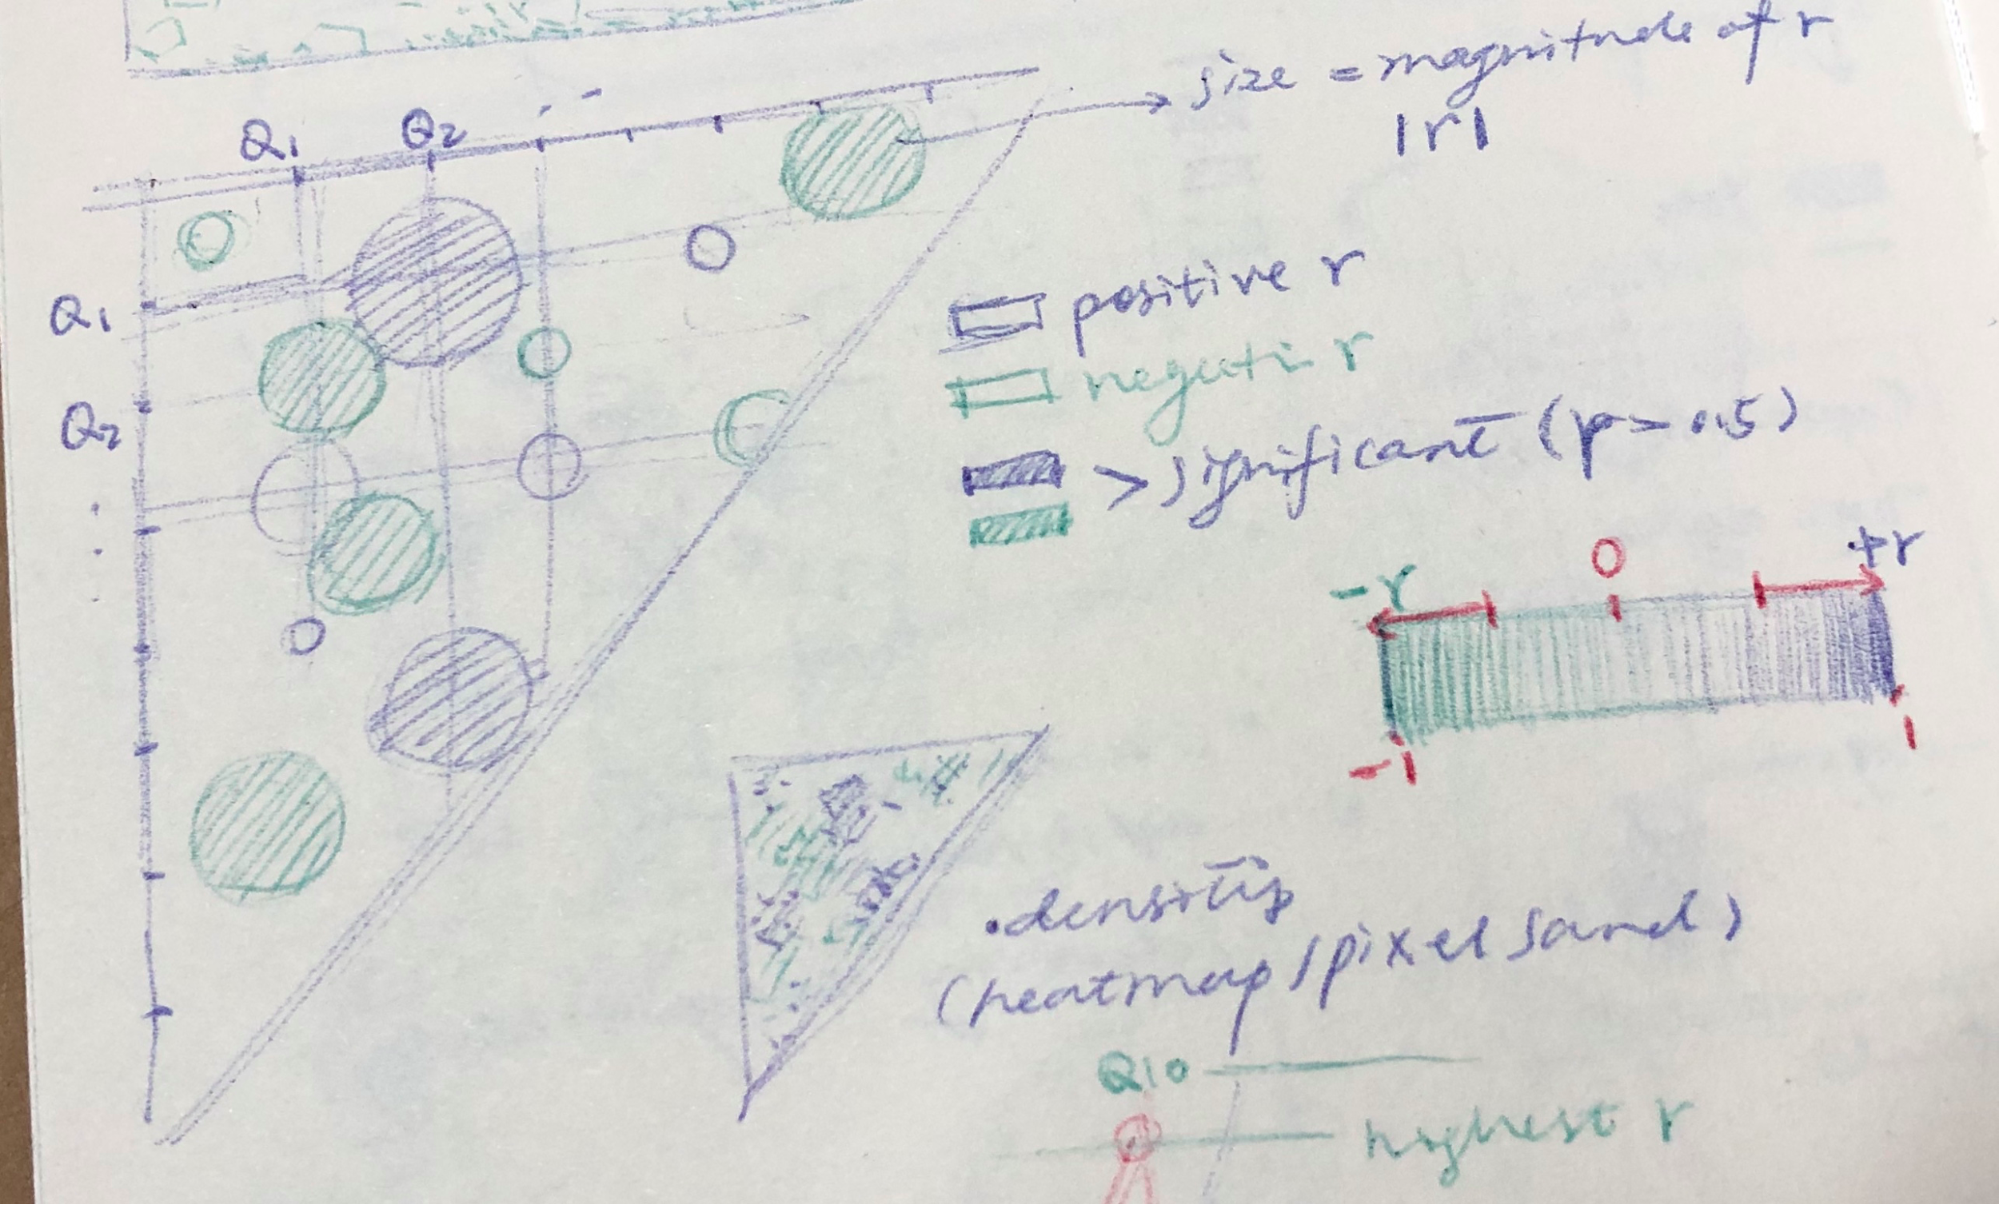 size = magnitude of r
|r|
Q1 Q2 . - -
Q1
Q2
:
positive r
negati r
> significant (p > 0.5)
-r 0 +r
-1 1
. density
(heatmap / pixel sand)
Q10
highest r